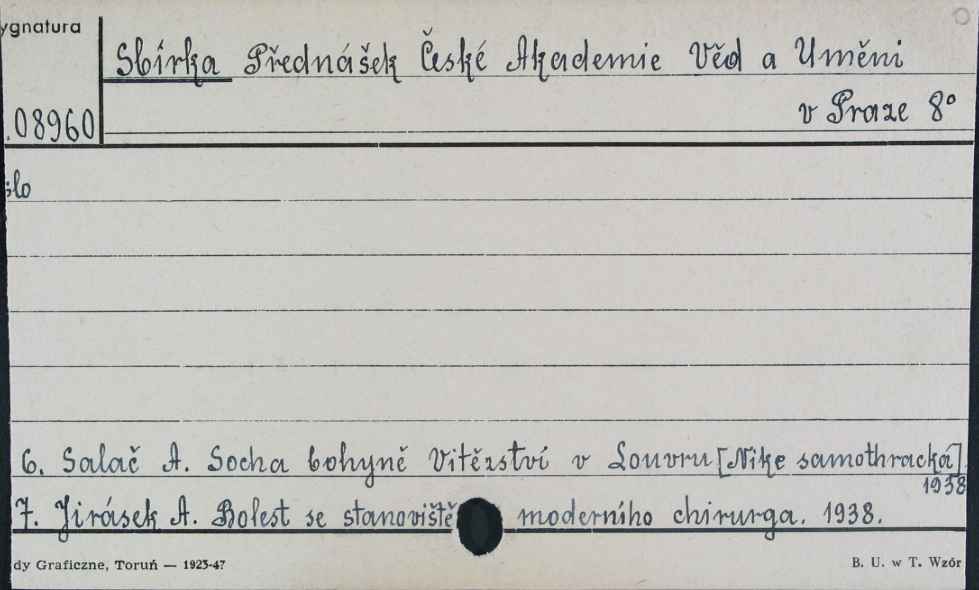 ygnatura
Sbírka Přednášek České Akademie Věd a Uměni
.08960
v Praze 8°
slo
6. Salač A. Socha bohyně Vitězství v Louvru [Nike samothracká]
1938
7. Jirásek A. Bolest se stanoviště moderního chirurga. 1938.
dy Graficzne, Toruń — 1925-47
B. U. w T. Wzór